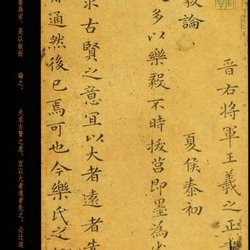 毅論
晋右將軍王羲之正書
夏侯泰初
多以樂毅不時拔莒即墨為
求古賢之意宜以大者遠者先
通然後已焉可也今樂氏之
為劣，是以叙而
論之。
夫求古賢之意，宜以大者遠者先之，必迂迴